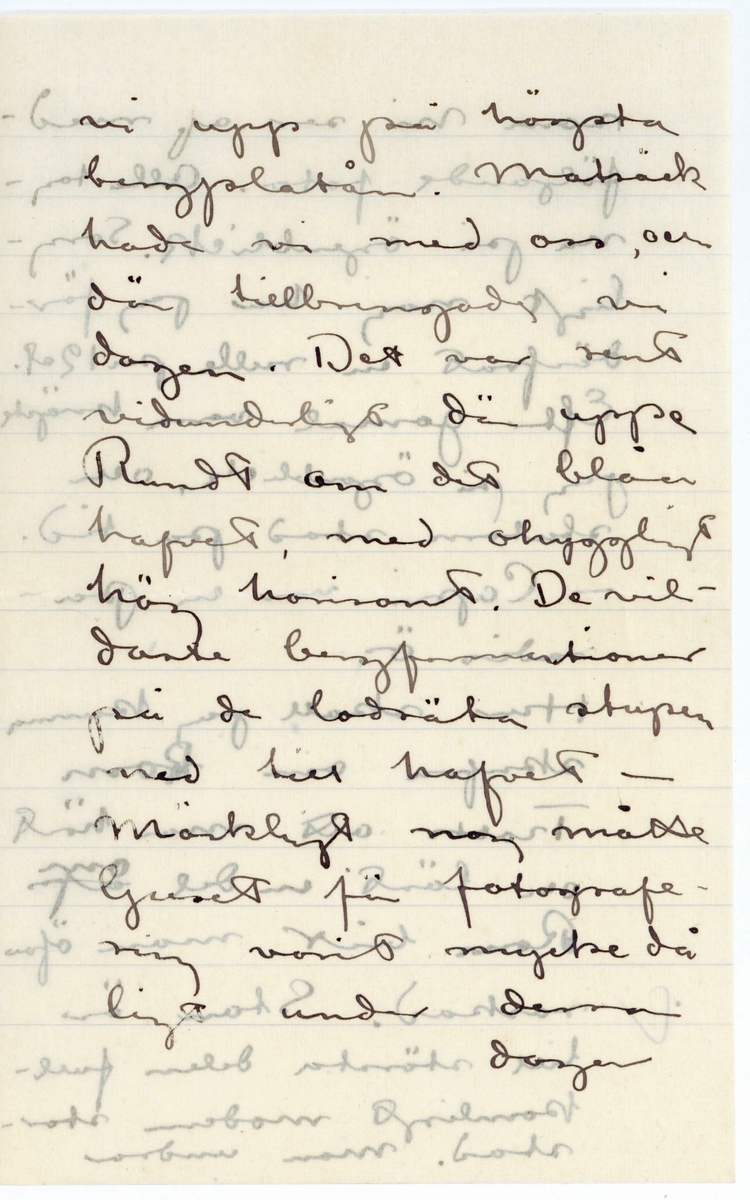 vi upp på högsta
bergplatån. Matsäck
hade vi med oss, och
där tillbringade vi
dagen. Det var rent
vidunderligt där uppe
Rundt om det blåa
hafvet, med ohyggligt
hög horisont. De vil-
daste bergformationer
på de lodräta stupen
ned till hafvet —
Märkligt nog måtte
ljuset för fotografe-
ring varit mycke då
ligt under dessa
dagar